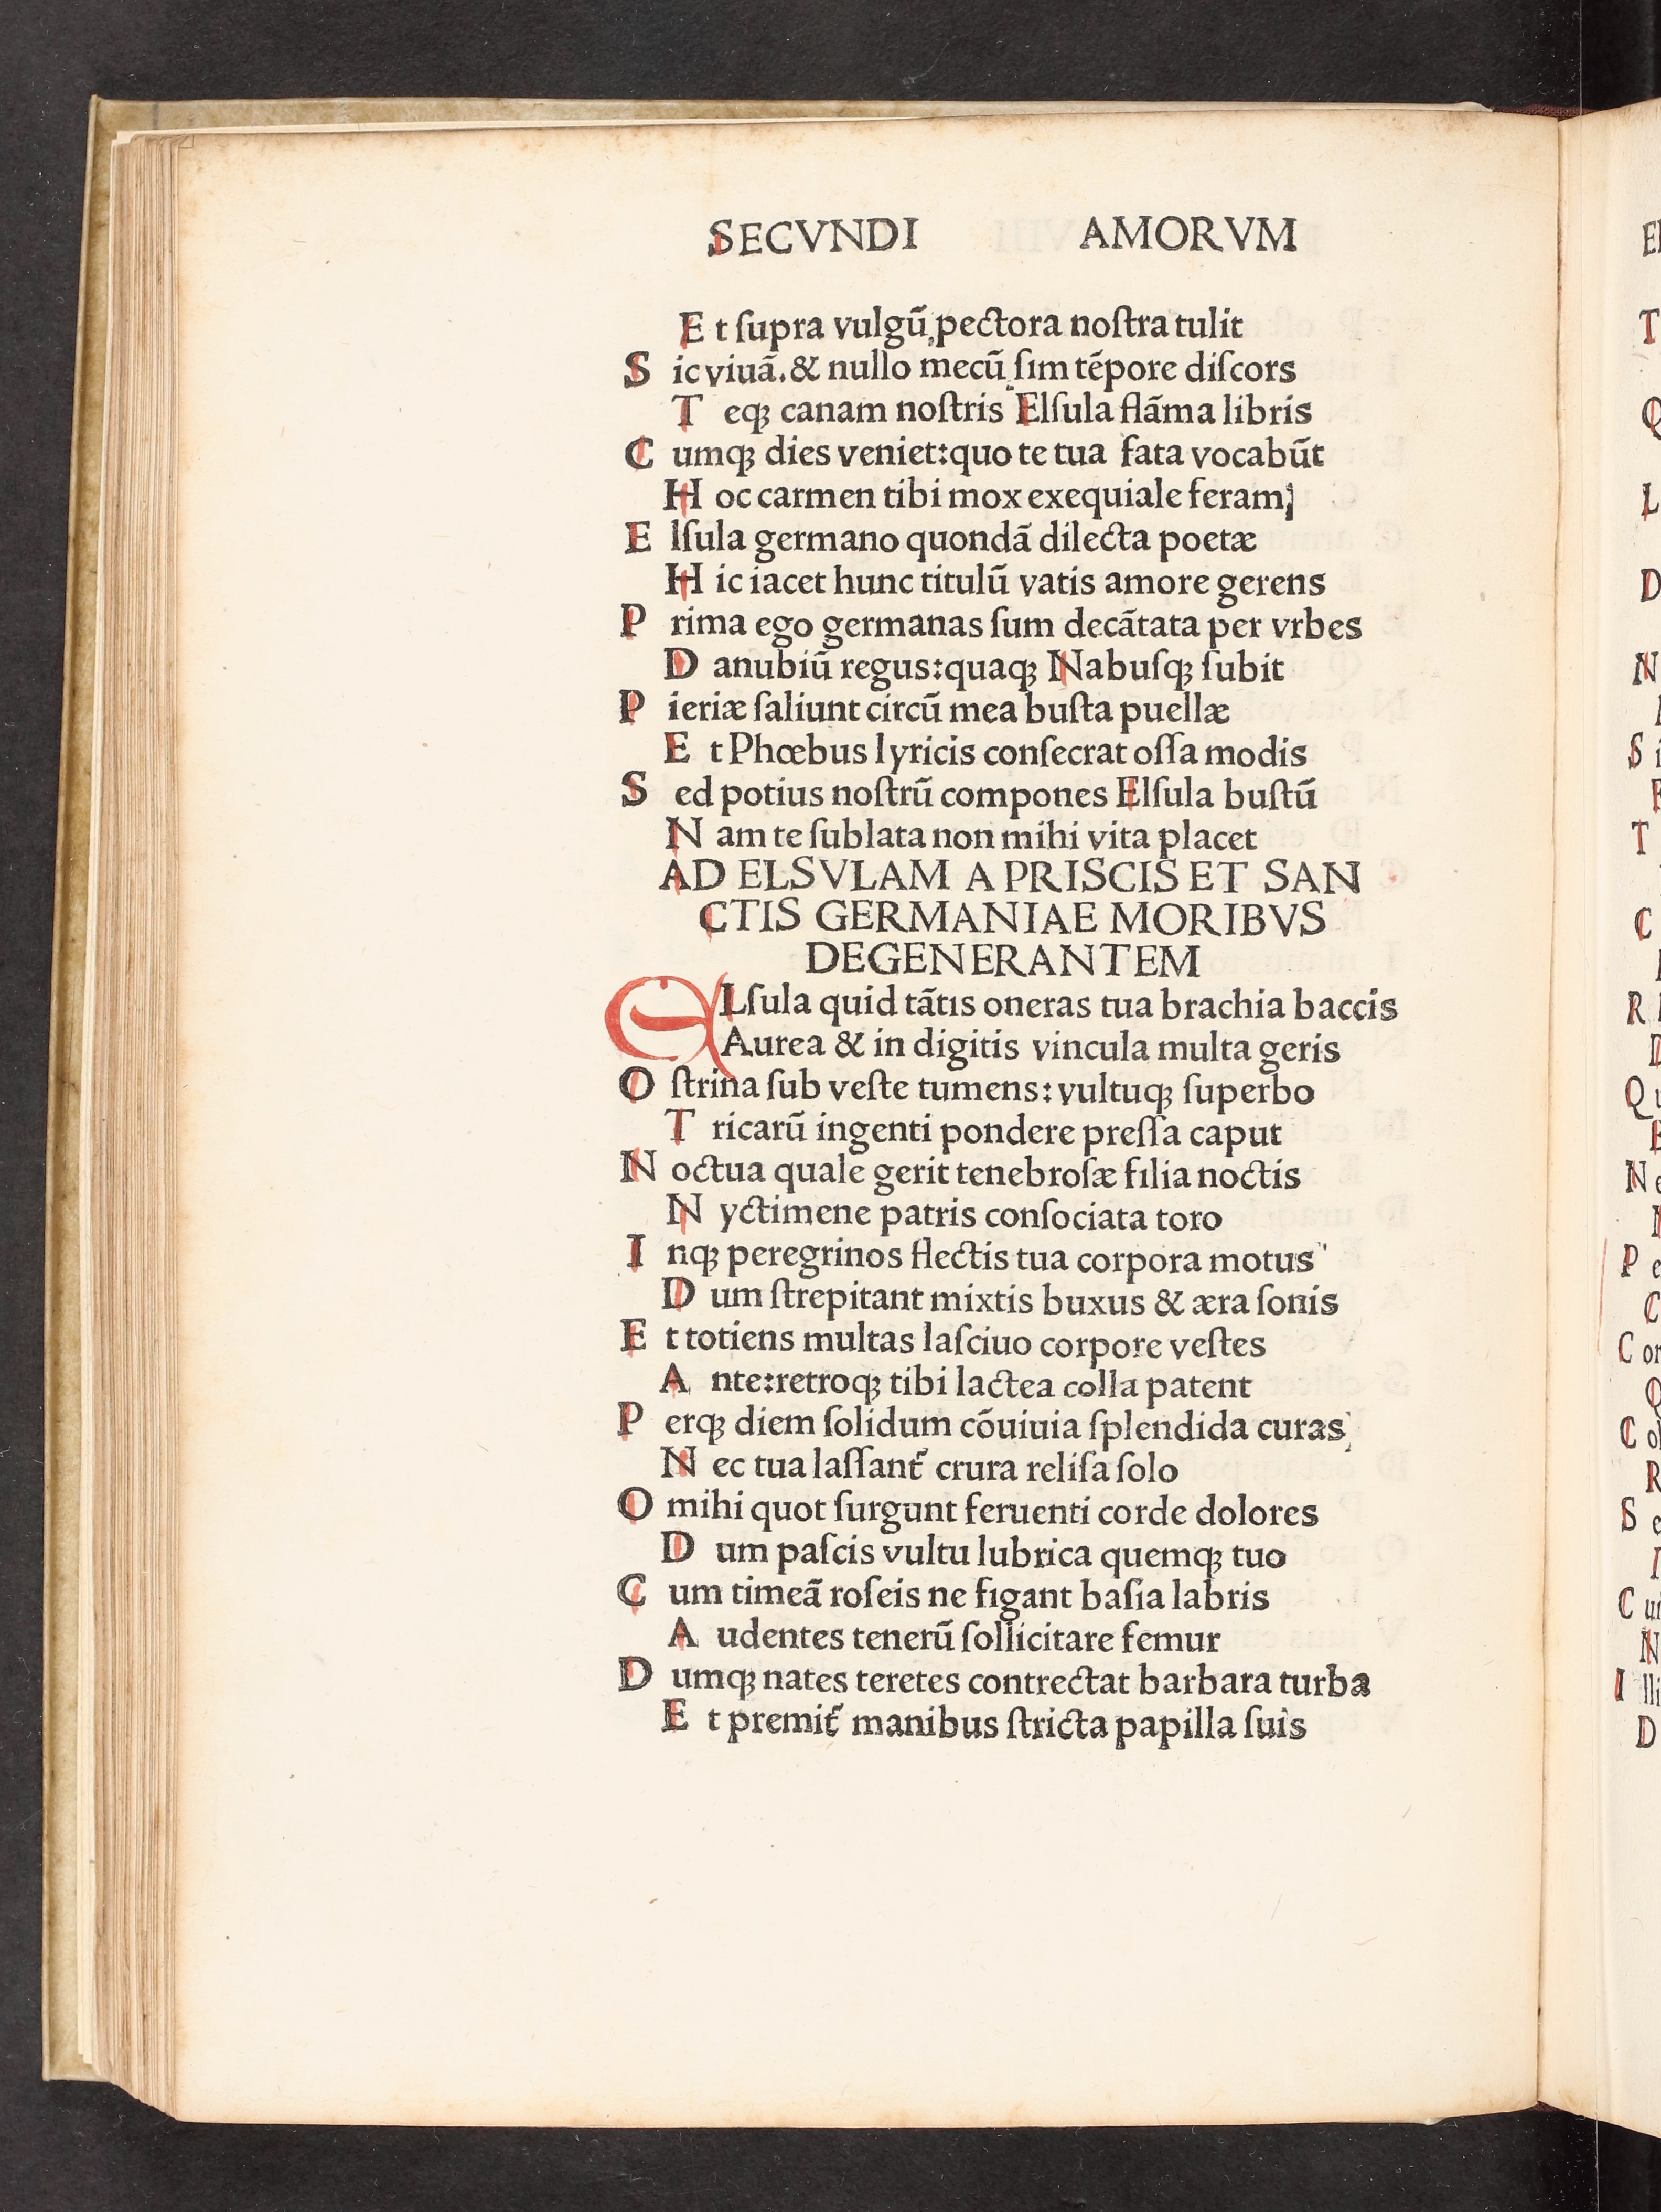 SECVNDI AMORVM
Et ſupra vulgū, pectora noſtra tulit
Sic viuā. & nullo mecū ſim tēpore diſcors
Teqꝫ canam noſtris Elſula flāma libris
Cumqꝫ dies veniet: quo te tua fata vocabūt
Hoc carmen tibi mox exequiale feram;
Elſula germano quondā dilecta poetæ
Hic iacet hunc titulū vatis amore gerens
Prima ego germanas ſum decātata per vrbes
Danubiū regus: quaqꝫ Nabuſqꝫ ſubit
Pieriæ ſaliunt circū mea buſta puellæ
Et Phœbus lyricis conſecrat oſſa modis
Sed potius noſtrū compones Elſula buſtū
Nam te ſublata non mihi vita placet
AD ELSVLAM A PRISCIS ET SAN
CTIS GERMANIAE MORIBVS
DEGENERANTEM
ELſula quid tātis oneras tua brachia baccis
Aurea & in digitis vincula multa geris
Oſtrina ſub veſte tumens: vultuqꝫ ſuperbo
Tricarū ingenti pondere preſſa caput
Noctua quale gerit tenebroſæ filia noctis
Nyctimene patris conſociata toro
Inqꝫ peregrinos flectis tua corpora motus
Dum ſtrepitant mixtis buxus & æra ſonis
Et totiens multas laſciuo corpore veſtes
Ante: retroqꝫ tibi lactea colla patent
Perqꝫ diem ſolidum cōuiuia ſplendida curas
Nec tua laſſant᷑ crura reliſa ſolo
O mihi quot ſurgunt feruenti corde dolores
Dum paſcis vultu lubrica quemqꝫ tuo
Cum timeā roſeis ne figant baſia labris
Audentes tenerū ſollicitare femur
Dumqꝫ nates teretes contrectat barbara turba
Et premit᷑ manibus ſtricta papilla ſuis